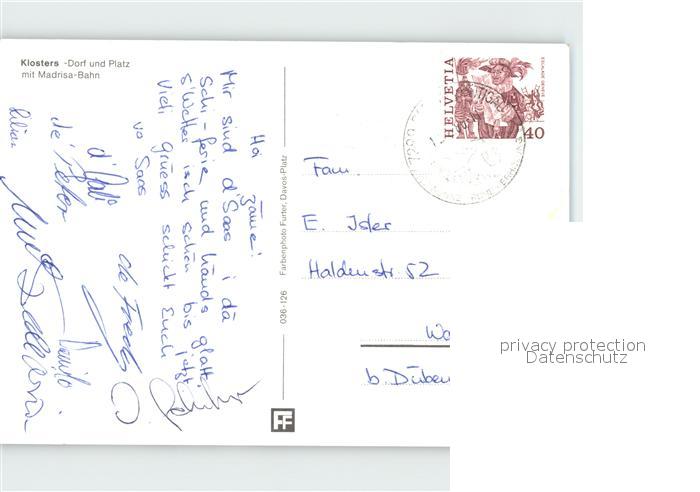 Klosters -Dorf und Platz
mit Madrisa-Bahn
Hoi
zäme!
Mir sind d'Saas i dä
Schi-ferie und händs glatt.
s'Wetter isch schön bis jetzt.
Vieli grüess schickt Euch
vo Saas
de Peter
Lilian
de Fredy
Danilo
036-126 Farbenphoto Furter, Davos-Platz
HELVETIA
40
Fam.
E. Isler
Haldenstr 52
Wa
b. Düben
FF
privacy protection
Datenschutz